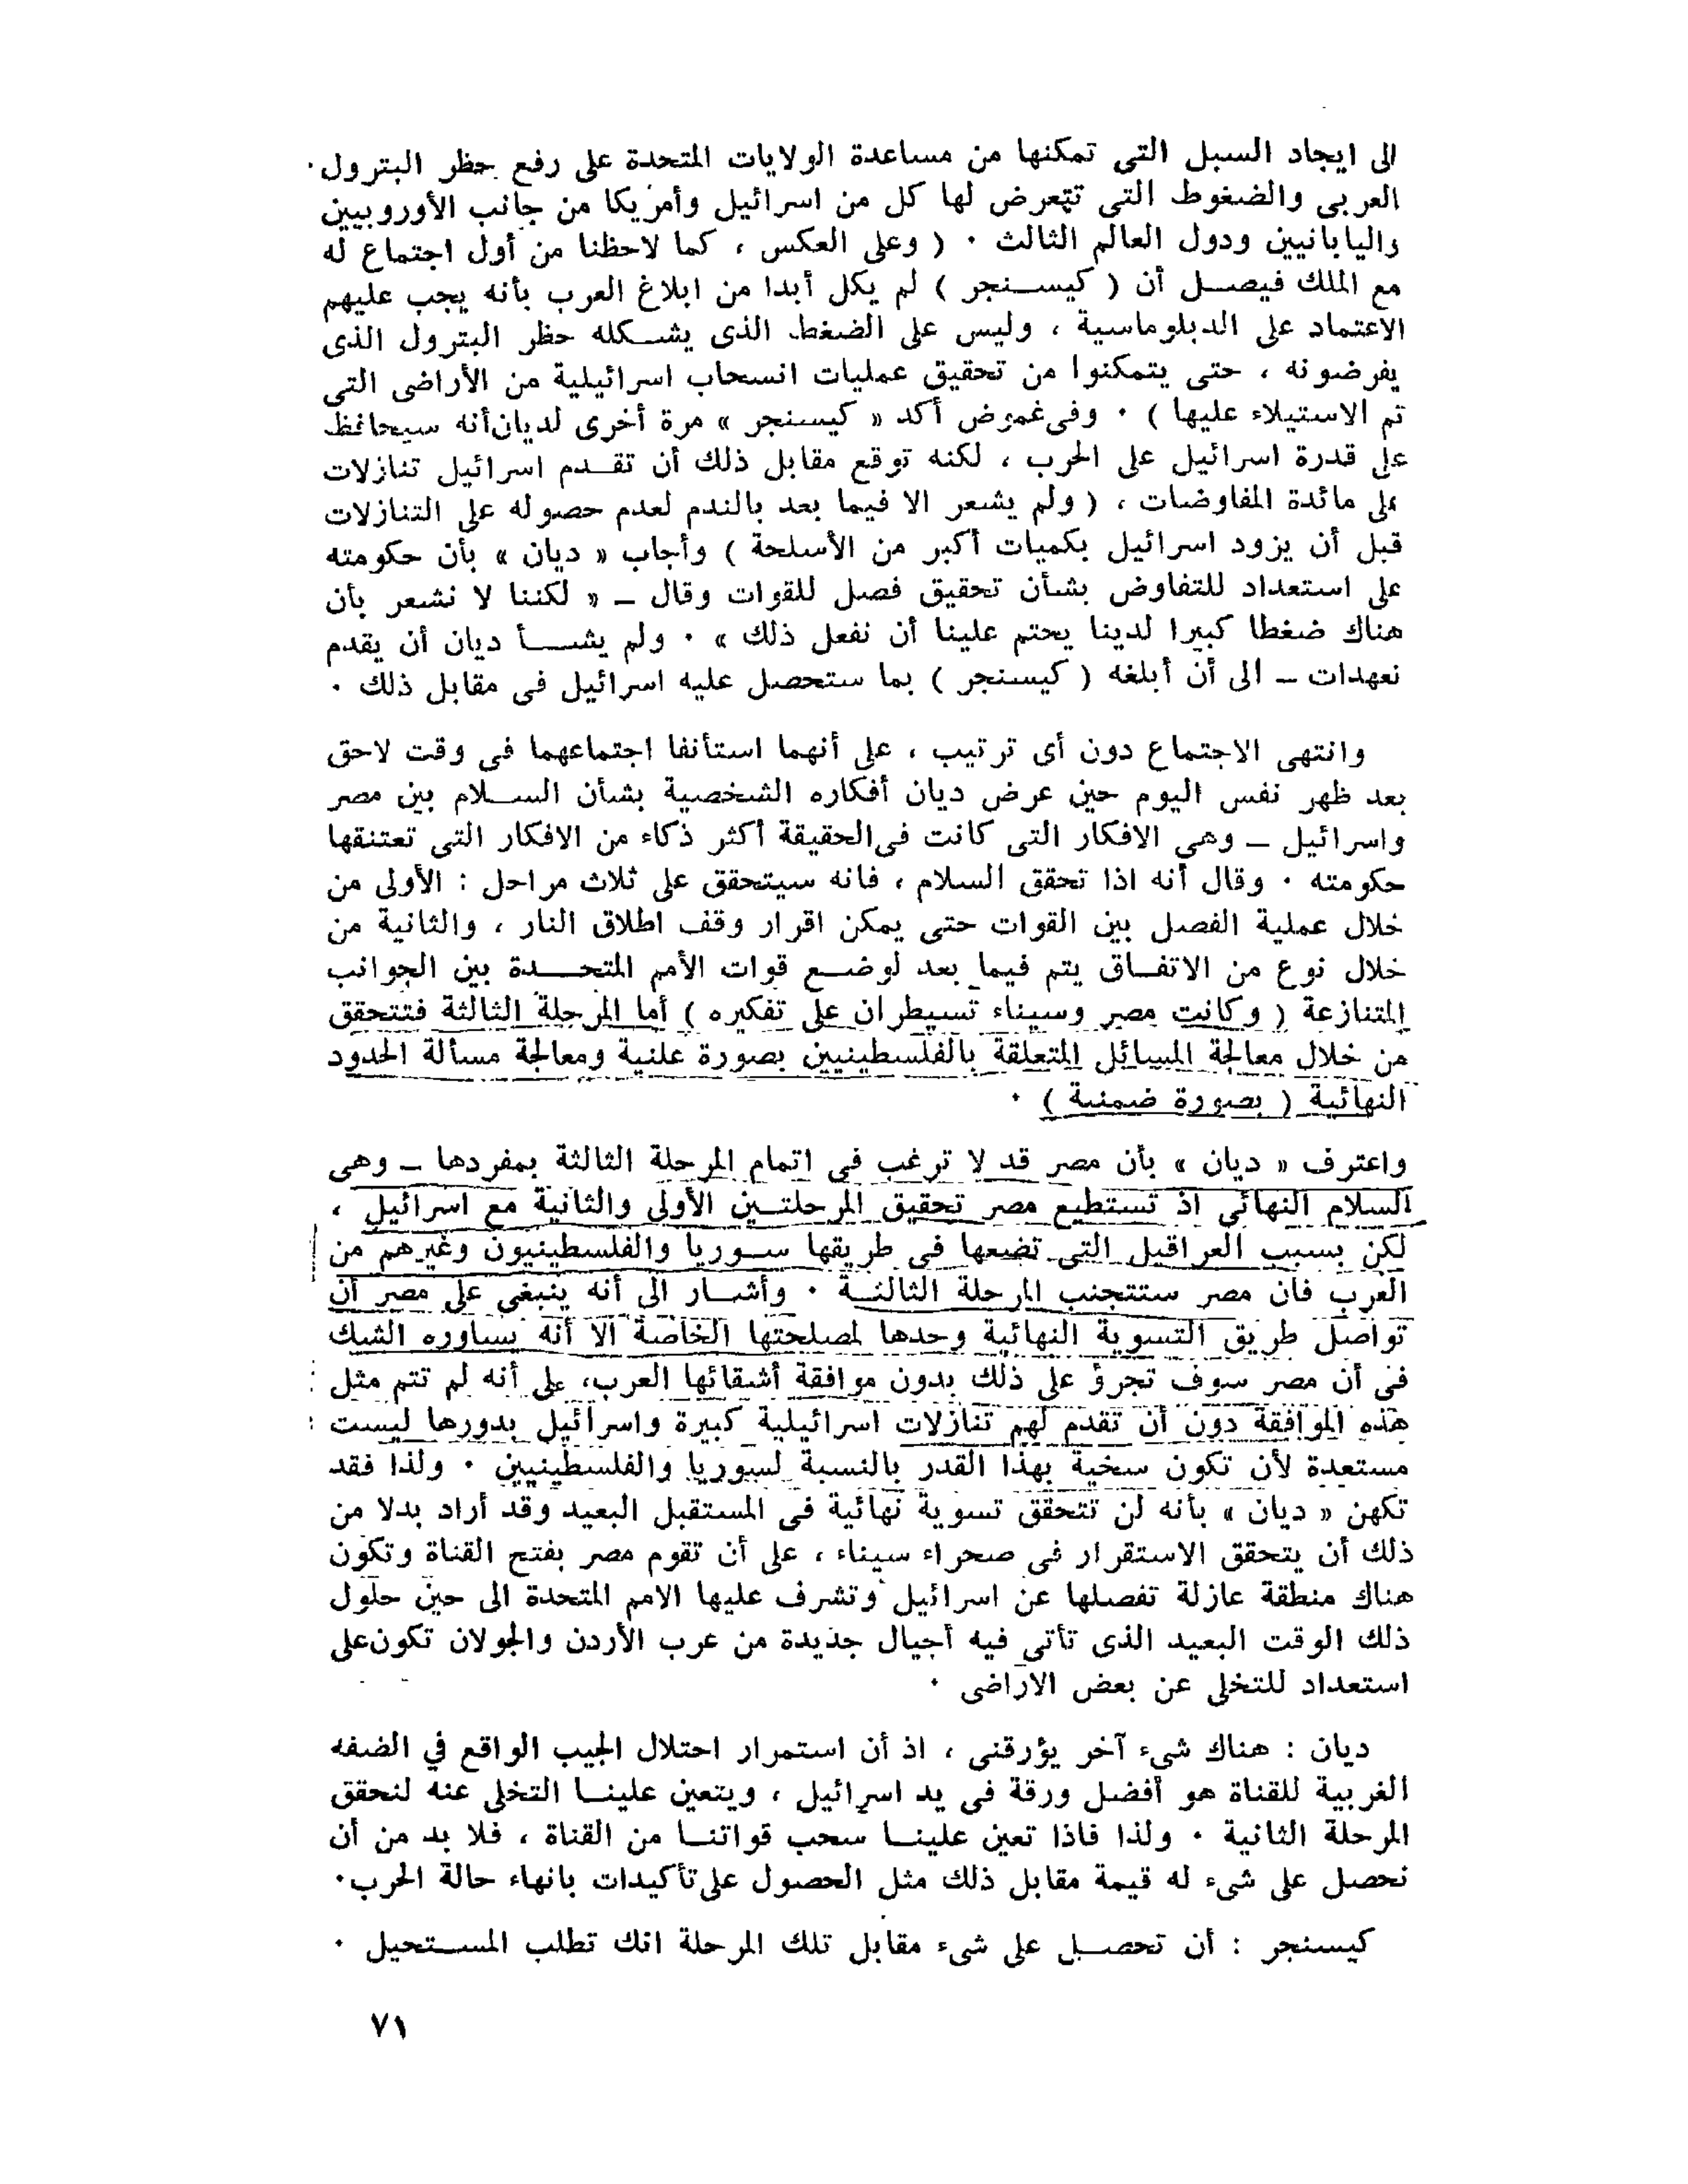 الى ايجاد السبل التى تمكنها من مساعدة الولايات المتحدة على رفع حظر البترول
العربى والضغوط التى تتعرض لها كل من اسرائيل وأمريكا من جانب الأوروبيين
واليابانيين ودول العالم الثالث ٠ ( وعلى العكس ، كما لاحظنا من أول اجتماع له
مع الملك فيصل أن ( كيسنجر ) لم يكل أبدا من ابلاغ العرب بأنه يجب عليهم
الاعتماد على الدبلوماسية ، وليس على الضغط الذى يشكله حظر البترول الذى
يفرضونه ، حتى يتمكنوا من تحقيق عمليات انسحاب اسرائيلية من الأراضى التى
تم الاستيلاء عليها ) ٠ وفى غموض أكد « كيسنجر » مرة أخرى لديان أنه سيحافظ
على قدرة اسرائيل على الحرب ، لكنه توقع مقابل ذلك أن تقدم اسرائيل تنازلات
على مائدة المفاوضات ، ( ولم يشعر الا فيما بعد بالندم لعدم حصوله على التنازلات
قبل أن يزود اسرائيل بكميات أكبر من الأسلحة ) وأجاب « ديان » بأن حكومته
على استعداد للتفاوض بشأن تحقيق فصل للقوات وقال – « لكننا لا نشعر بأن
هناك ضغطا كبيرا لدينا يحتم علينا أن نفعل ذلك » ٠ ولم يشأ ديان أن يقدم
تعهدات – الى أن أبلغه ( كيسنجر ) بما ستحصل عليه اسرائيل فى مقابل ذلك ٠
وانتهى الاجتماع دون أى ترتيب ، على أنهما استأنفا اجتماعهما فى وقت لاحق
بعد ظهر نفس اليوم حين عرض ديان أفكاره الشخصية بشأن السلام بين مصر
واسرائيل – وهى الافكار التى كانت فى الحقيقة أكثر ذكاء من الافكار التى تعتنقها
حكومته ٠ وقال أنه اذا تحقق السلام ، فانه سيتحقق على ثلاث مراحل : الأولى من
خلال عملية الفصل بين القوات حتى يمكن اقرار وقف اطلاق النار ، والثانية من
خلال نوع من الاتفاق يتم فيما بعد لوضع قوات الأمم المتحدة بين الجوانب
المتنازعة ( وكانت مصر وسيناء تسيطران على تفكيره ) أما المرحلة الثالثة فتتحقق
من خلال معالجة المسائل المتعلقة بالفلسطينيين بصورة علنية ومعالجة مسألة الحدود
النهائية ( بصورة ضمنية ) ٠
واعترف « ديان » بأن مصر قد لا ترغب فى اتمام المرحلة الثالثة بمفردها – وهى
السلام النهائى اذ تستطيع مصر تحقيق المرحلتين الأولى والثانية مع اسرائيل ،
لكن بسبب العراقيل التى تضعها فى طريقها سوريا والفلسطينيون وغيرهم من
العرب فان مصر ستتجنب المرحلة الثالثة ٠ وأشار الى أنه ينبغى على مصر أن
تواصل طريق التسوية النهائية وحدها لمصلحتها الخاصة الا أنه يساوره الشك
فى أن مصر سوف تجرؤ على ذلك بدون موافقة أشقائها العرب، على أنه لم تتم مثل
هذه الموافقة دون أن تقدم لهم تنازلات اسرائيلية كبيرة واسرائيل بدورها ليست
مستعدة لأن تكون سخية بهذا القدر بالنسبة لسوريا والفلسطينيين ٠ ولذا فقد
تكهن « ديان » بأنه لن تتحقق تسوية نهائية فى المستقبل البعيد وقد أراد بدلا من
ذلك أن يتحقق الاستقرار فى صحراء سيناء ، على أن تقوم مصر بفتح القناة وتكون
هناك منطقة عازلة تفصلها عن اسرائيل وتشرف عليها الامم المتحدة الى حين حلول
ذلك الوقت البعيد الذى تأتى فيه أجيال جديدة من عرب الأردن والجولان تكون على
استعداد للتخلى عن بعض الاراضى ٠
ديان : هناك شىء آخر يؤرقنى ، اذ أن استمرار احتلال الجيب الواقع في الضفه
الغربية للقناة هو أفضل ورقة فى يد اسرائيل ، ويتعين علينا التخلى عنه لنحقق
المرحلة الثانية ٠ ولذا فاذا تعين علينا سحب قواتنا من القناة ، فلا بد من أن
نحصل على شىء له قيمة مقابل ذلك مثل الحصول على تأكيدات بانهاء حالة الحرب٠
كيسنجر : أن تحصل على شىء مقابل تلك المرحلة انك تطلب المستحيل ٠
٧١